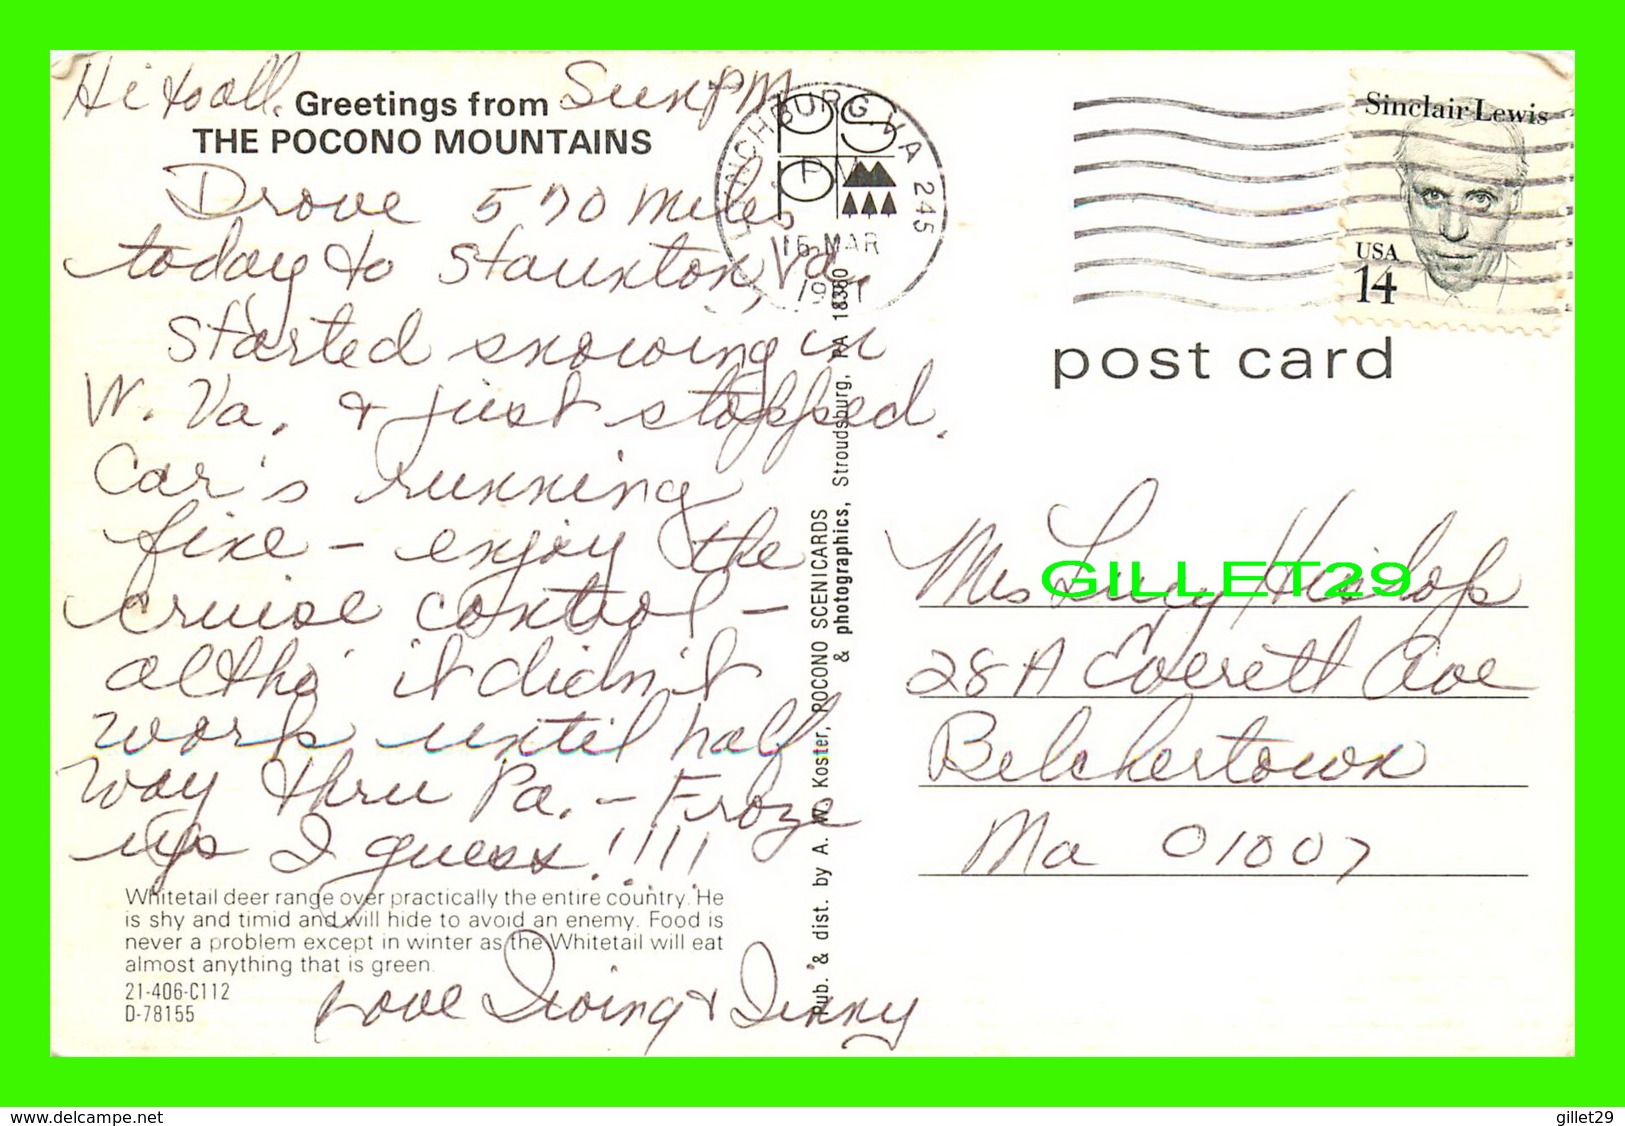 Hi to all. Sun PM
Greetings from
THE POCONO MOUNTAINS
Drove 570 miles
today to Staunton, Va.
Started snowing in
W. Va. & just stopped.
Car's running
fine - enjoy the
cruise control -
altho' it didn't
work until half
way thru Pa. - Froze
up I guess!!!!
Whitetail deer range over practically the entire country. He
is shy and timid and will hide to avoid an enemy. Food is
never a problem except in winter as the Whitetail will eat
almost anything that is green.
21-406-C112
D-78155
Love Irving &
LYNCHBURG VA 245
PM
MAR
PS
P
Pub. & dist. by A. W. Koster, POCONO SCENICARDS
& photographics, Stroudsburg, PA 18360
Sinclair Lewis
USA
14
post card
Mrs Lucy Hislop
GILLET29
28A Everett Ave
Belchertown
Ma 01007
www.delcampe.net
gillet29